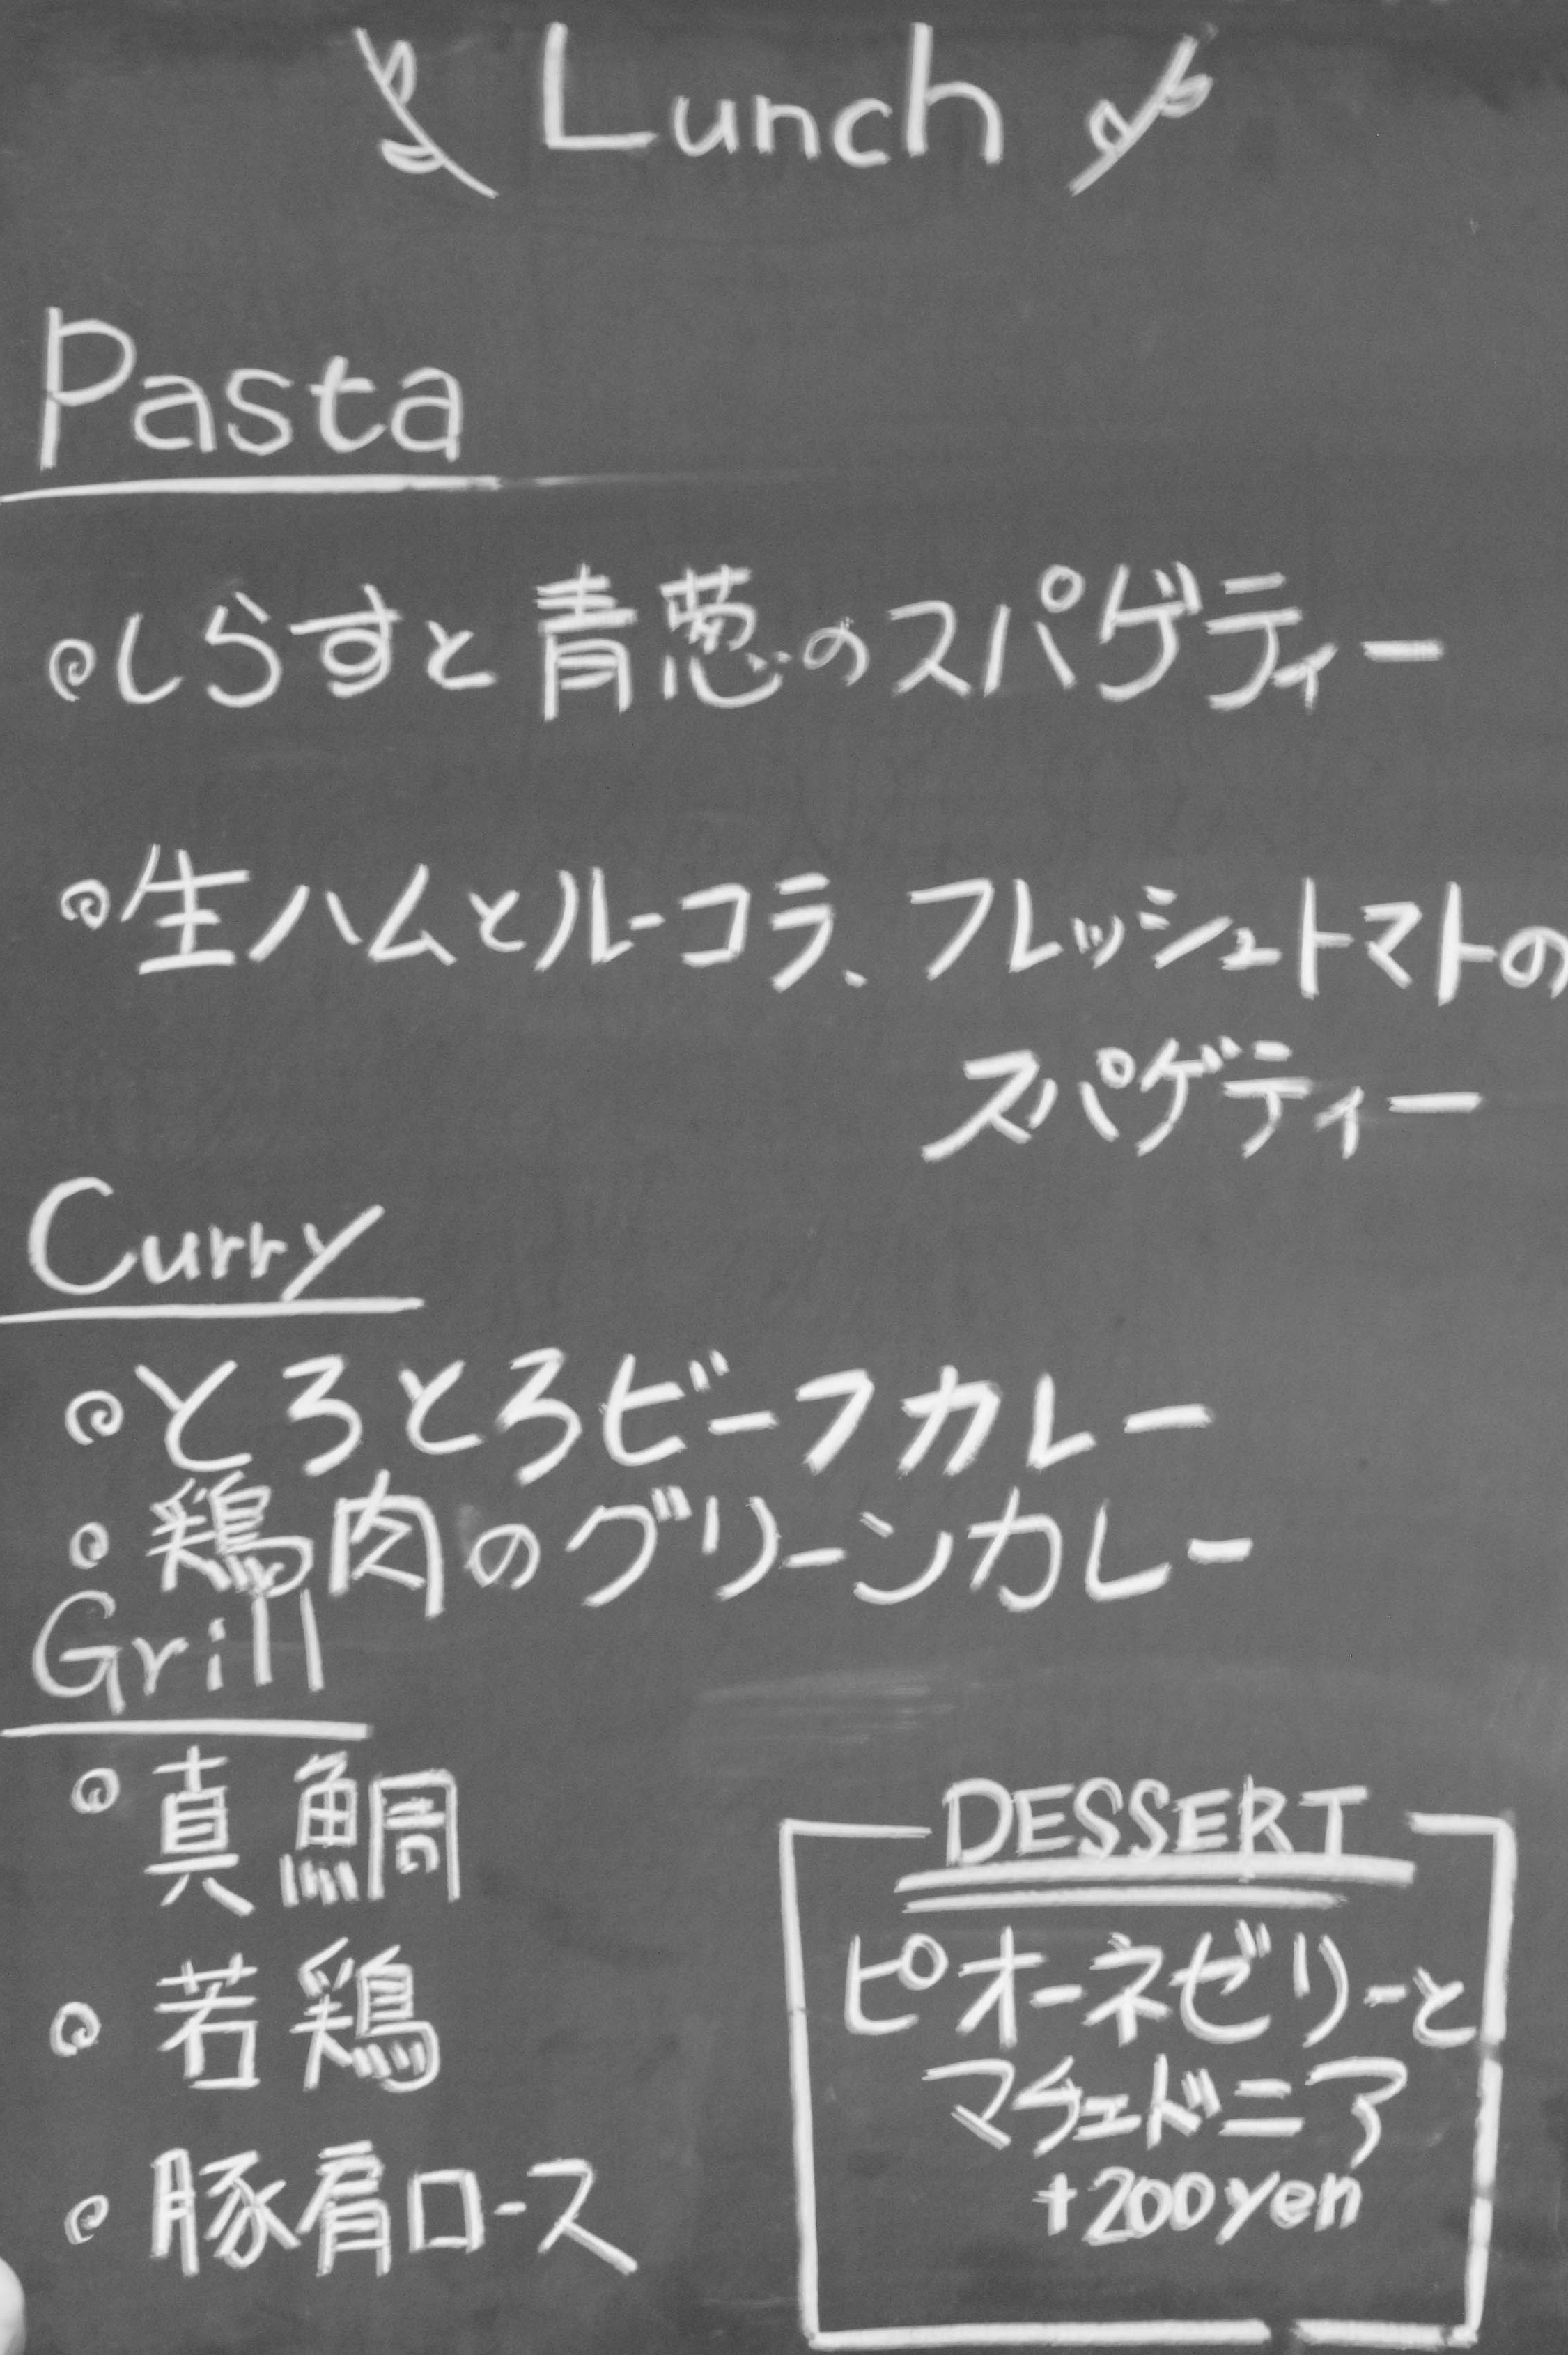 Lunch
Pasta
しらすと青葱のスパゲティー
生ハムとルーコラ、フレッシュトマトの
スパゲティー
Curry
とろとろビーフカレー
鶏肉のグリーンカレー
Grill
真鯛
若鶏
豚肩ロース
DESSERT
ピオーネゼリーと
マチェドニア
+200yen